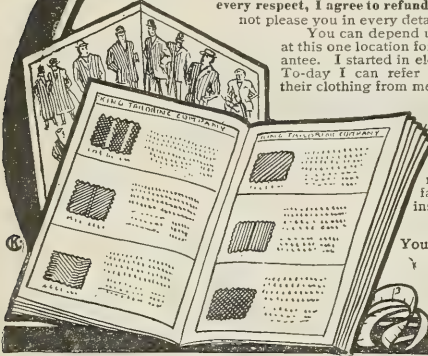 every respect, I agree to refund
not please you in every deta
You can depend u
at this one location fo
antee. I started in el
To-day I can refer
their clothing from me
fa
ins
You
KING TAILORING COMPANY
KING TAILORING COMPANY